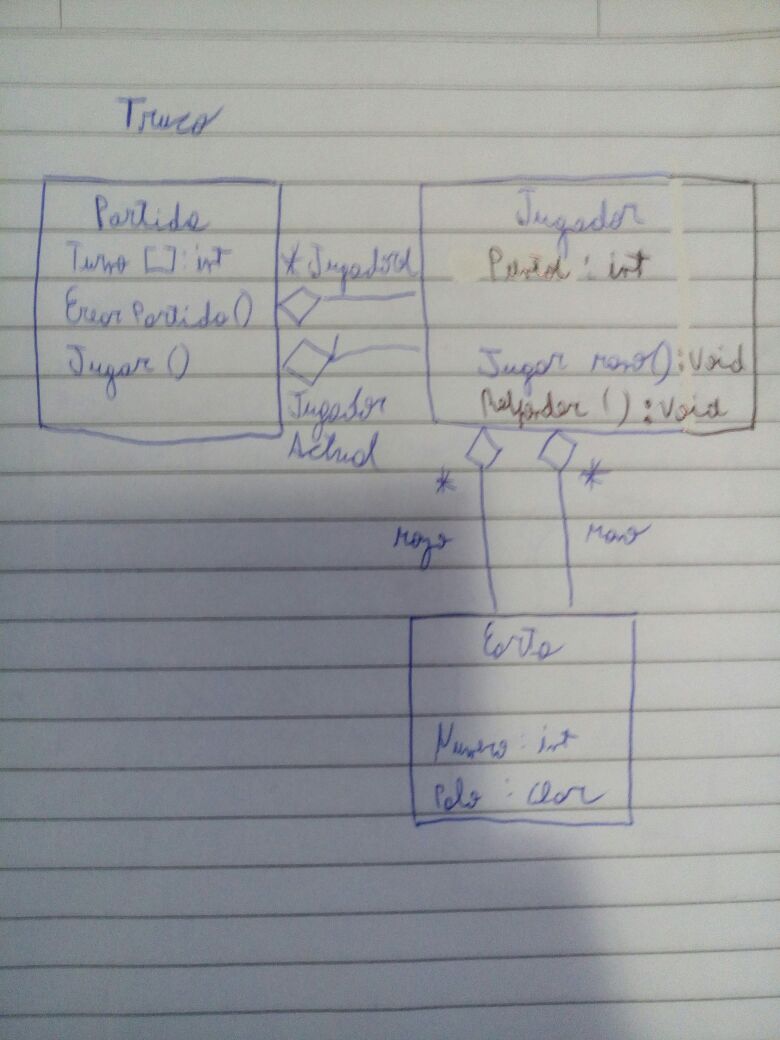 Truco
Partida
Turno []: int
Crear Partida()
Jugar ()
* Jugador
Jugador
Actual
Jugador
: int
Jugar mano(): Void
Responder (): Void
*
mazo
*
mano
Carta
Numero: int
Palo : char